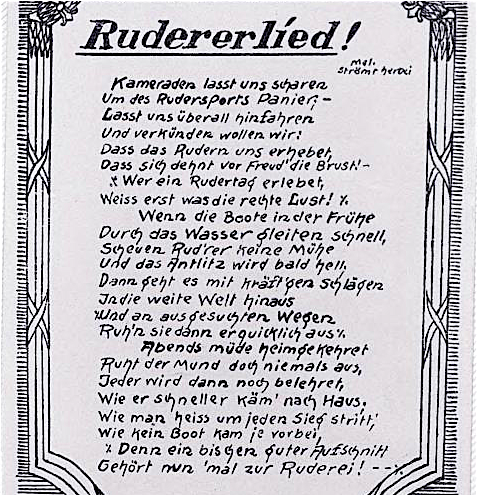 Rudererlied!
Mel.
Strömt herbei
Kameraden lasst uns scharen
Um des Rudersports Panier; -
Lasst uns überall hinfahren
Und verkünden wollen wir:
Dass das Rudern uns erhebet,
Dass sich dehnt vor Freud' die Brust! -
⁒ Wer ein Rudertag erlebet,
Weiss erst was die rechte Lust! ⁒
Wenn die Boote in der Frühe
Durch das Wasser gleiten schnell,
Scheuen Rud'rer keine Mühe
Und das Antlitz wird bald hell.
Dann geht es mit kräft'gen Schlägen
In die weite Welt hinaus
⁒ Und an ausgesuchten Wegen
Ruh'n sie dann erquicklich aus ⁒
Abends müde heimgekehret
Ruht der Mund doch niemals aus,
Jeder wird dann noch belehret,
Wie er schneller käm' nach Haus.
Wie man heiss um jeden Sieg stritt',
Wie kein Boot kam je vorbei,
⁒ Denn ein bischen guter Aufschnitt
Gehört nun 'mal zur Ruderei! - - ⁒